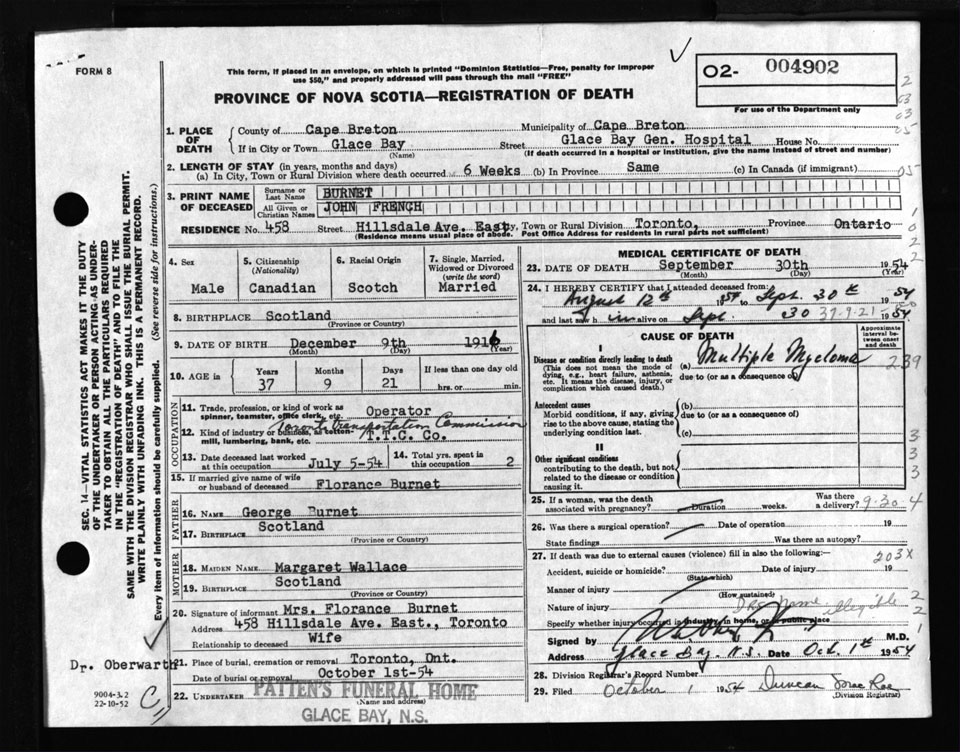 FORM 8
This form, if placed in an envelope, on which is printed "Dominion Statistics—Free, penalty for improper
use $50," and properly addressed will pass through the mail "FREE"
O2- 004902
For use of the Department only
PROVINCE OF NOVA SCOTIA—REGISTRATION OF DEATH
1. PLACE OF DEATH
County of Cape Breton Municipality of Cape Breton
If in City or Town Glace Bay Street Glace Bay Gen. Hospital House No.
(Name) (If death occurred in a hospital or institution, give the name instead of street and number)
2. LENGTH OF STAY (in years, months and days)
(a) In City, Town or Rural Division where death occurred 6 Weeks (b) In Province Same (c) In Canada (if immigrant)
3. PRINT NAME OF DECEASED
Surname or Last Name BURNET
All Given or Christian Names JOHN FRENCH
RESIDENCE No. 458 Street Hillsdale Ave. East City, Town or Rural Division Toronto, Province Ontario
(Residence means usual place of abode. Post Office Address for residents in rural parts not sufficient)
4. Sex Male
5. Citizenship (Nationality) Canadian
6. Racial Origin Scotch
7. Single, Married, Widowed or Divorced (write the word) Married
8. BIRTHPLACE Scotland
(Province or Country)
9. DATE OF BIRTH December 9th 1916
(Month) (Day) (Year)
10. AGE in Years Months Days If less than one day old
37 9 21 hrs. or min.
OCCUPATION
11. Trade, profession, or kind of work as
spinner, teamster, office clerk, etc. Operator
Toronto Transportation Commission
12. Kind of industry or business, as cotton-
mill, lumbering, bank, etc. T.T.C. Co.
13. Date deceased last worked
at this occupation July 5-54
14. Total yrs. spent in
this occupation 2
15. If married give name of wife
or husband of deceased Florance Burnet
FATHER
16. NAME George Burnet
17. BIRTHPLACE Scotland
(Province or Country)
MOTHER
18. MAIDEN NAME Margaret Wallace
19. BIRTHPLACE Scotland
(Province or Country)
20. Signature of informant Mrs. Florance Burnet
Address 458 Hillsdale Ave. East., Toronto
Relationship to deceased Wife
21. Place of burial, cremation or removal Toronto, Ont.
Date of burial or removal October 1st-54
22. UNDERTAKER PATTEN'S FUNERAL HOME
(Name and address)
GLACE BAY, N.S.
MEDICAL CERTIFICATE OF DEATH
23. DATE OF DEATH September 30th 1954
(Month) (Day) (Year)
24. I HEREBY CERTIFY that I attended deceased from:
August 12th 1954 to Sept. 30th 1954
and last saw h im alive on Sept. 30 1954
37-9-21
CAUSE OF DEATH
Approximate interval between onset and death
I
Disease or condition directly leading to death
(This does not mean the mode of
dying, e.g., heart failure, asthenia,
etc. It means the disease, injury, or
complication which caused death.)
(a) Multiple Myeloma
due to (or as a consequence of)
239
Antecedent causes
Morbid conditions, if any, giving
rise to the above cause, stating the
underlying condition last.
(b)
due to (or as a consequence of)
(c)
II
Other significant conditions
contributing to the death, but not
related to the disease or condition
causing it.
3
3
3
25. If a woman, was the death
associated with pregnancy? Duration weeks. Was there
a delivery?
9-30-4
26. Was there a surgical operation? Date of operation 19
State findings Was there an autopsy?
27. If death was due to external causes (violence) fill in also the following:
203X
Accident, suicide or homicide? Date of injury 19
(State which)
Manner of injury
(How sustained)
Nature of injury
Drs Name illegible
Specify whether injury occurred in industry, in home, or public place
Signed by M.D.
Address Glace Bay. N.S. Date Oct. 1st 1954
28. Division Registrar's Record Number
29. Filed October 1 1954 Duncan MacRae
(Division Registrar)
SEC. 14—VITAL STATISTICS ACT MAKES IT THE DUTY
OF THE UNDERTAKER OR PERSON ACTING AS UNDER-
TAKER TO OBTAIN ALL THE PARTICULARS REQUIRED
IN THE "REGISTRATION OF DEATH" AND TO FILE THE
SAME WITH THE DIVISION REGISTRAR WHO SHALL ISSUE THE BURIAL PERMIT.
WRITE PLAINLY WITH UNFADING INK. THIS IS A PERMANENT RECORD.
Every item of information should be carefully supplied. (See reverse side for instructions.)
Dr. Oberwarth
9004-3.2
22-10-52
C